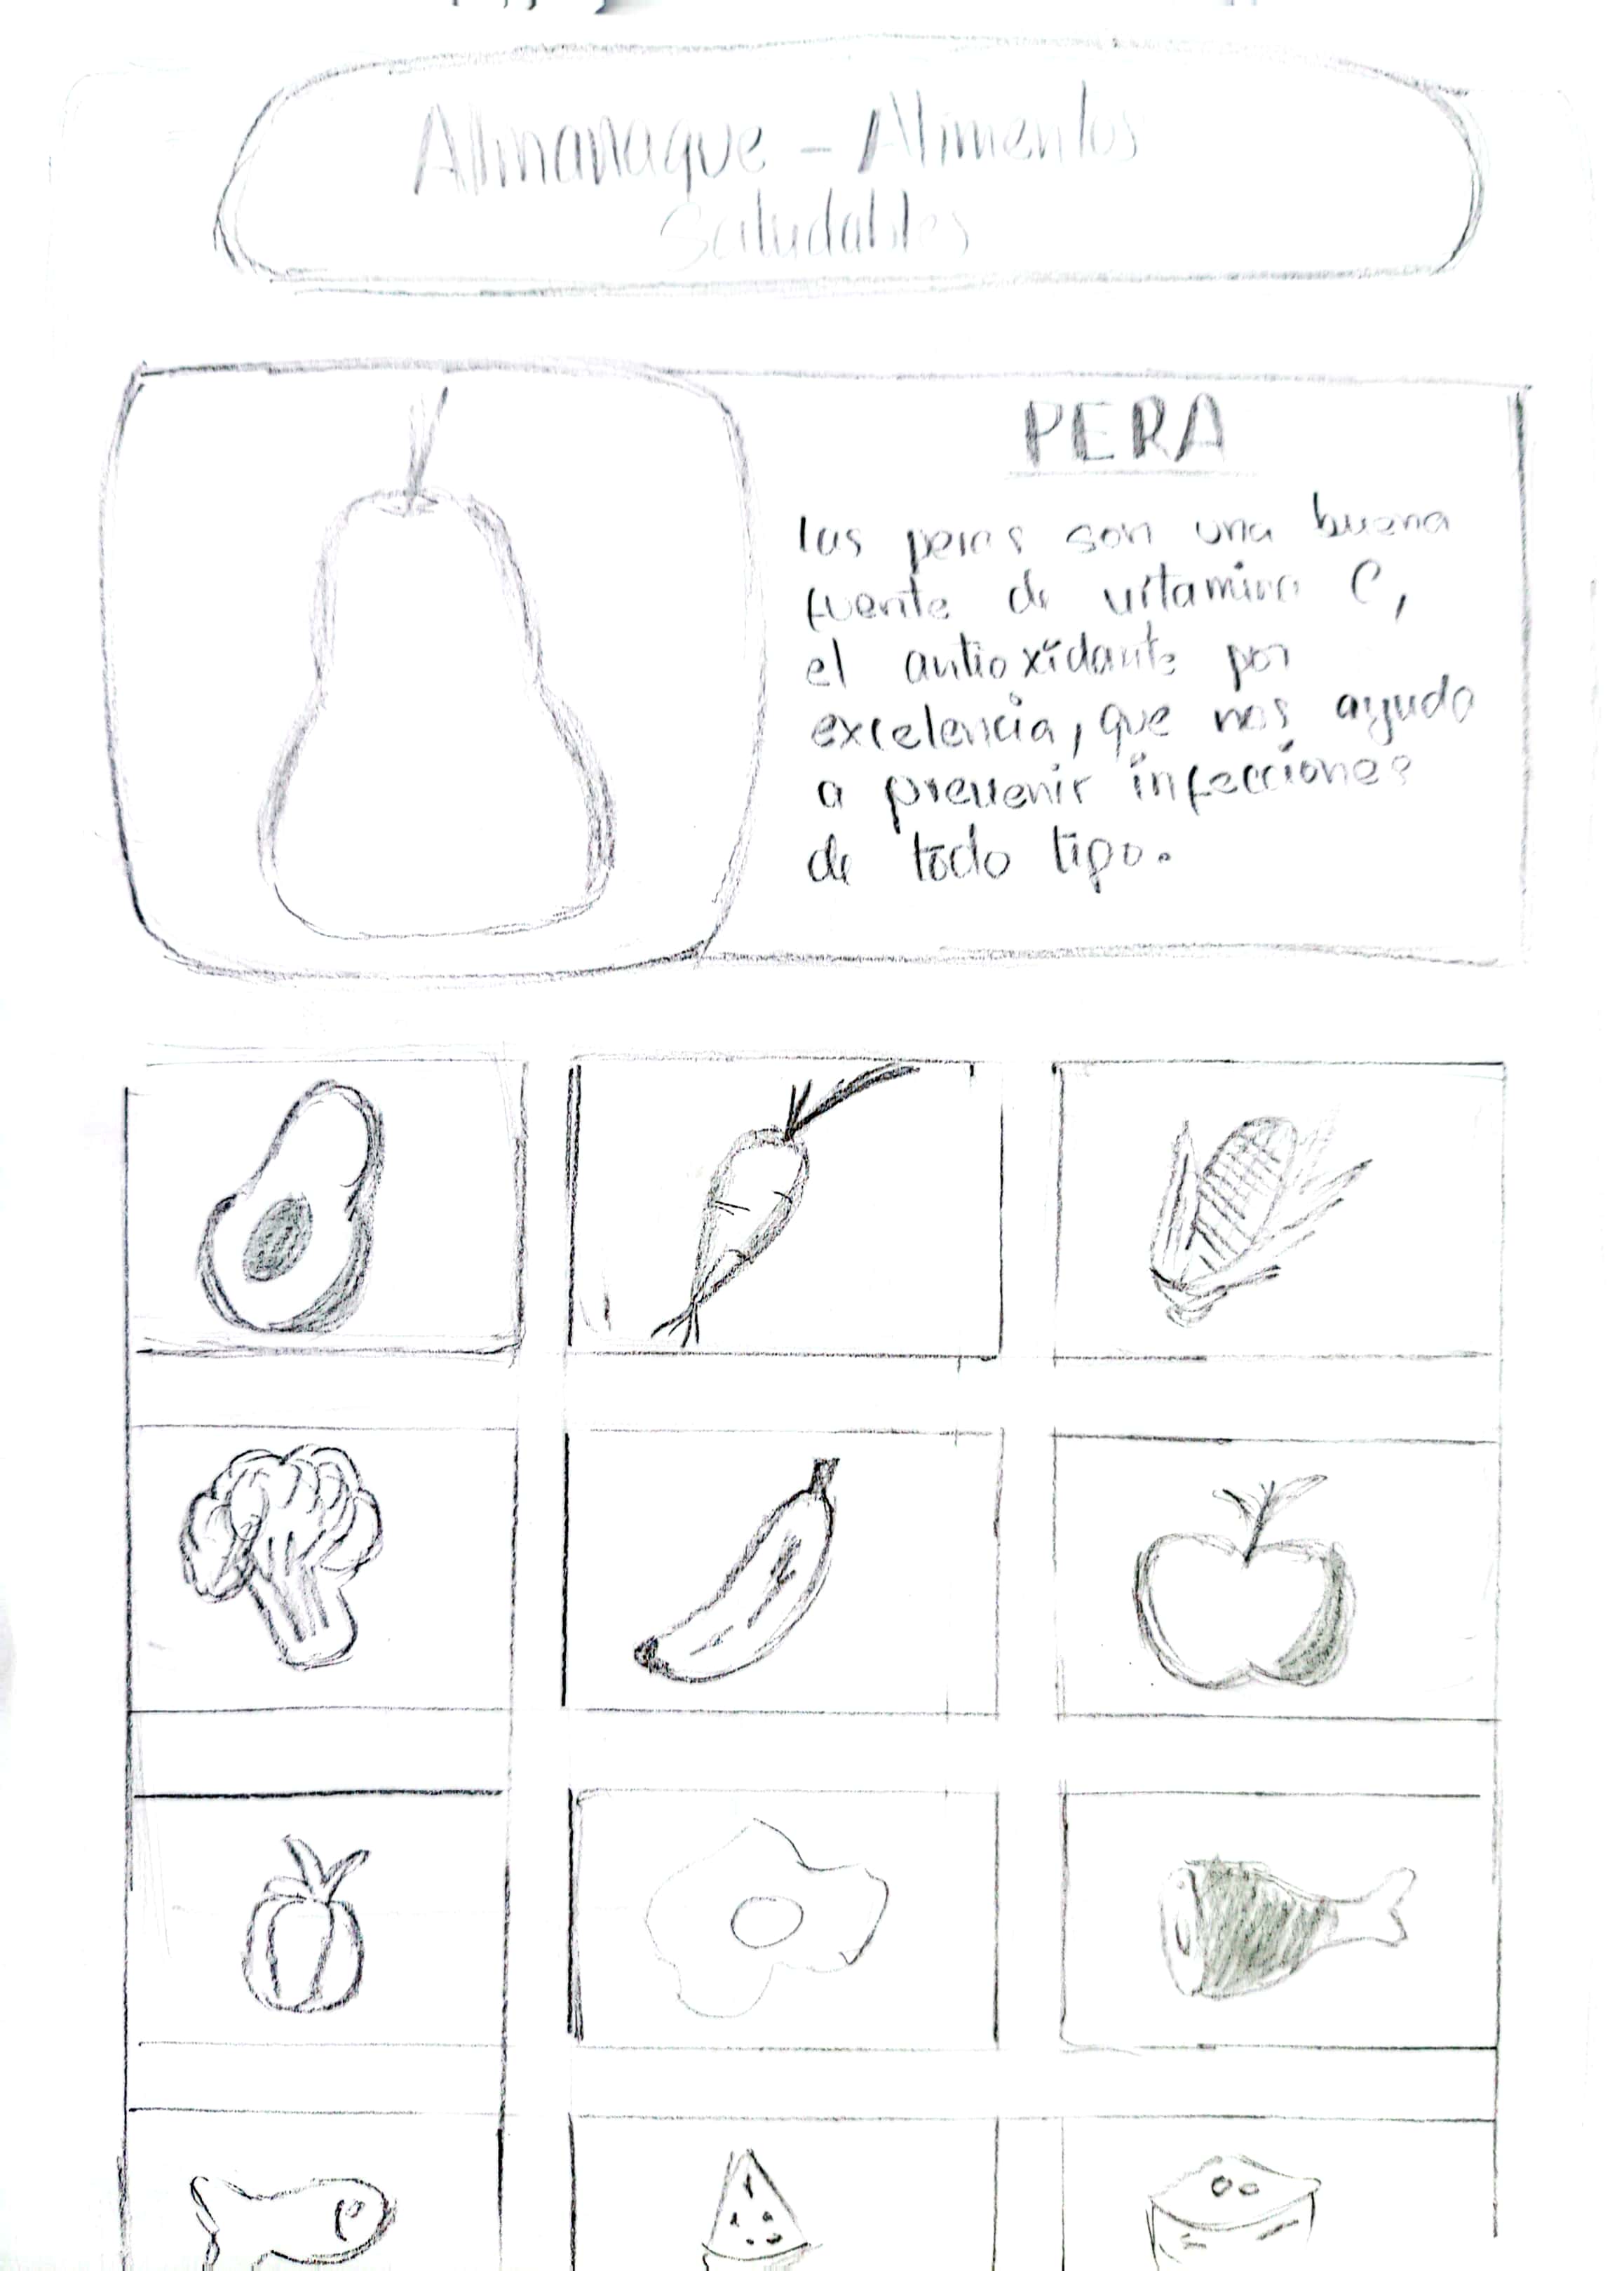 Almanaque - Alimentos
Saludables
PERA
las peras son una buena
fuente de vitamina C,
el antioxidante por
excelencia, que nos ayuda
a prevenir infecciones
de todo tipo.